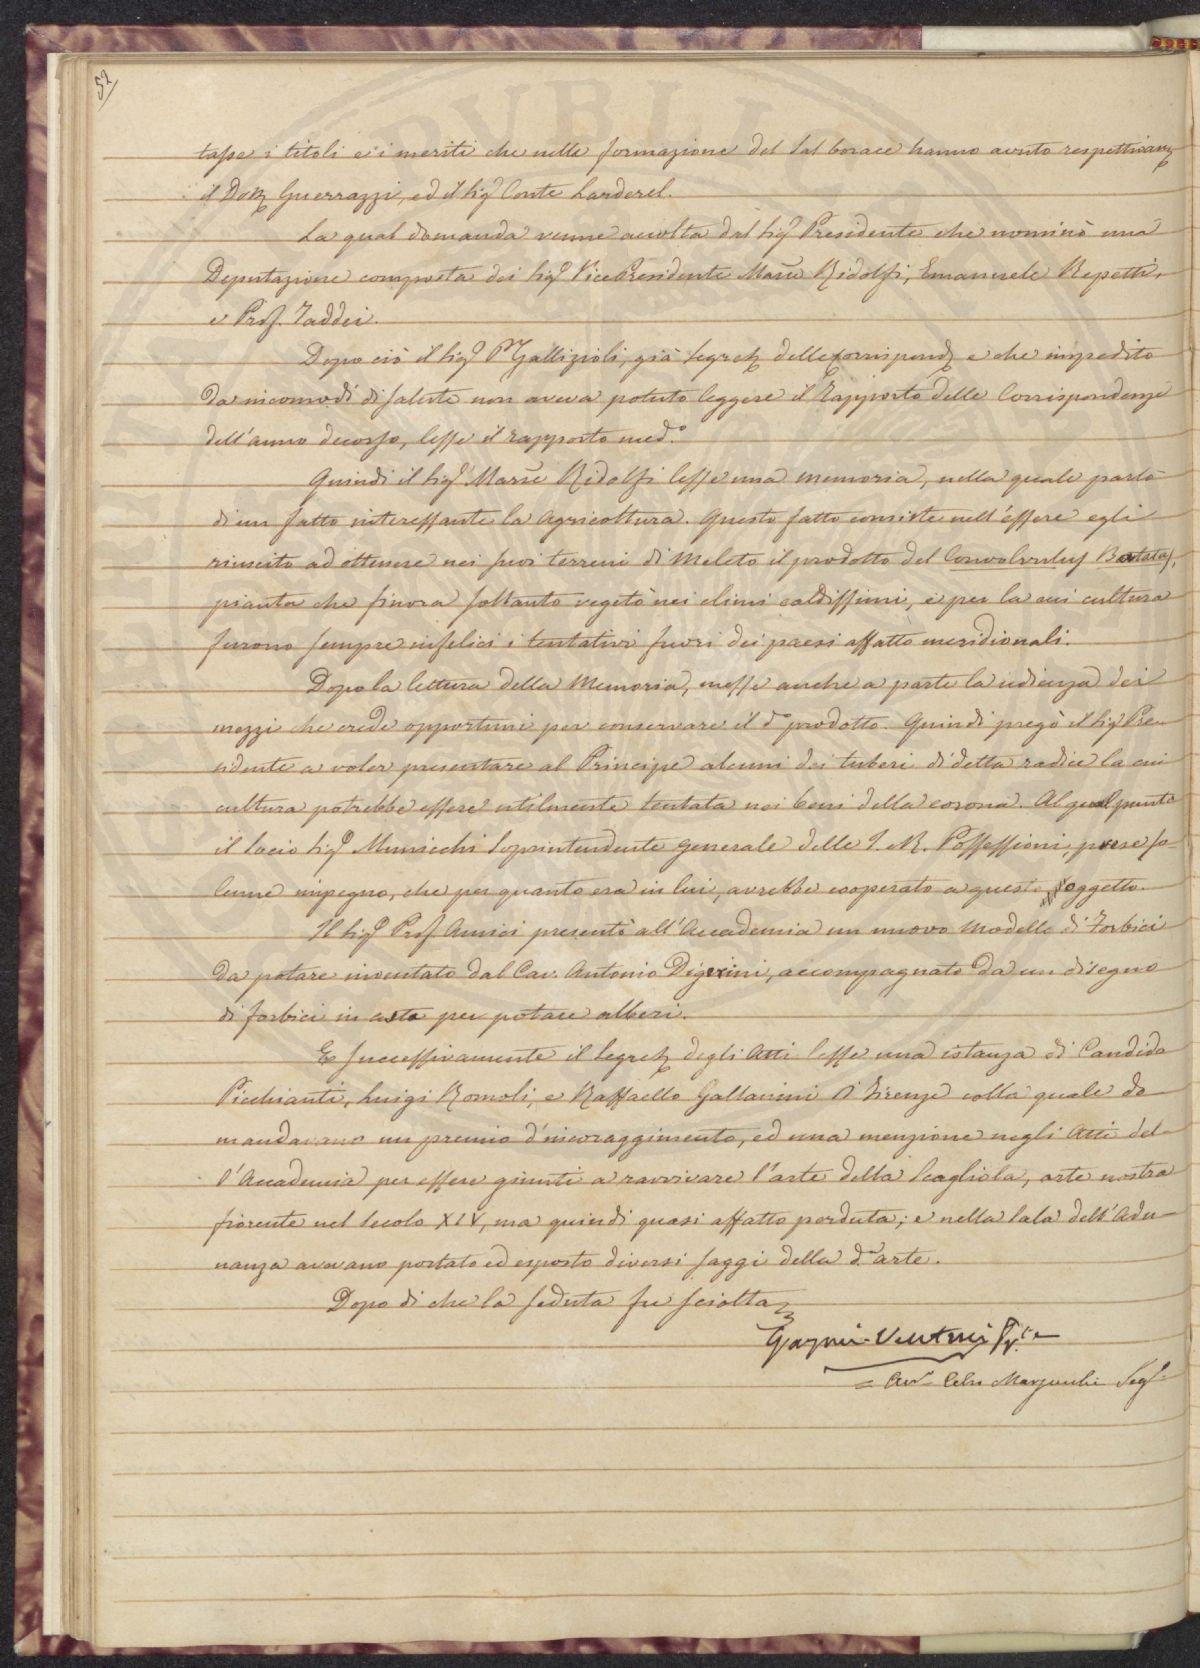 52
tasse i titoli e i meriti che nella formazione del Sal borace hanno avuto respettivam
il Dott Guerrazzi, ed il Sigr Conte Larderel.
La qual domanda venne accolta dal Sigr Presidente che nominò una
Deputazione composta dei Sigri Vice Presidente March Ridolfi, Emanuele Repetti,
e Prof. Taddei.
Dopo ciò il Sigr Pr Gallizioli, già Segret delle corrispond e che impedito
da incomodi di salute non aveva potuto leggere il Rapporto delle Corrispondenze
dell'anno decorso, lesse il rapporto med.o
Quindi il Sigr March Ridolfi lesse una memoria, nella quale parlò
di un fatto interessante la Agricoltura. Questo fatto consiste nell'essere egli
riuscito ad ottenere nei suoi terreni di Meleto il prodotto del Convolvulus Batatas,
pianta che finora soltanto vegetò nei climi caldissimi, e per la cui cultura
furono sempre infelici i tentativi fuori dei paesi affatto meridionali.
Dopo la lettura della Memoria, messe anche a parte la udienza dei
mezzi che crede opportuni per conservare il do prodotto. Quindi pregò il Sigr Pre-
sidente a voler presentare al Principe alcuni dei tuberi di detta radice la cui
cultura potrebbe essere utilmente tentata nei beni della corona. Al qual punto
il Socio Sigr Municchi Soprintendente generale delle I. e R. Possessioni, prese so-
lenne impegno, che per quanto era in lui, avrebbe cooperato a questo oggetto.
Il Sigr Prof Amici presentò all'Accademia un nuovo modello di Forbici
da potare inventato dal Cav. Antonio Digerini, accompagnato da un disegno
di forbici in asta per potare alberi.
E successivamente il Segret degli Atti lesse una istanza di Candido
Picchianti, Luigi Romoli, e Raffaello Gallanini di Firenze colla quale do-
mandavano un premio d'incoraggimento, ed una menzione negli Atti del-
l'Accademia per essere giunti a ravvivare l'arte della Scagliola, arte nostra
fiorente nel Secolo XIV, ma quindi quasi affatto perduta; e nella Sala dell'Adu-
nanza avevano portato ed esposto diversi saggi della da arte.
Dopo di che la seduta fu sciolta
Gazzeri Venturi
Avv. Celso Marzucchi Seg.